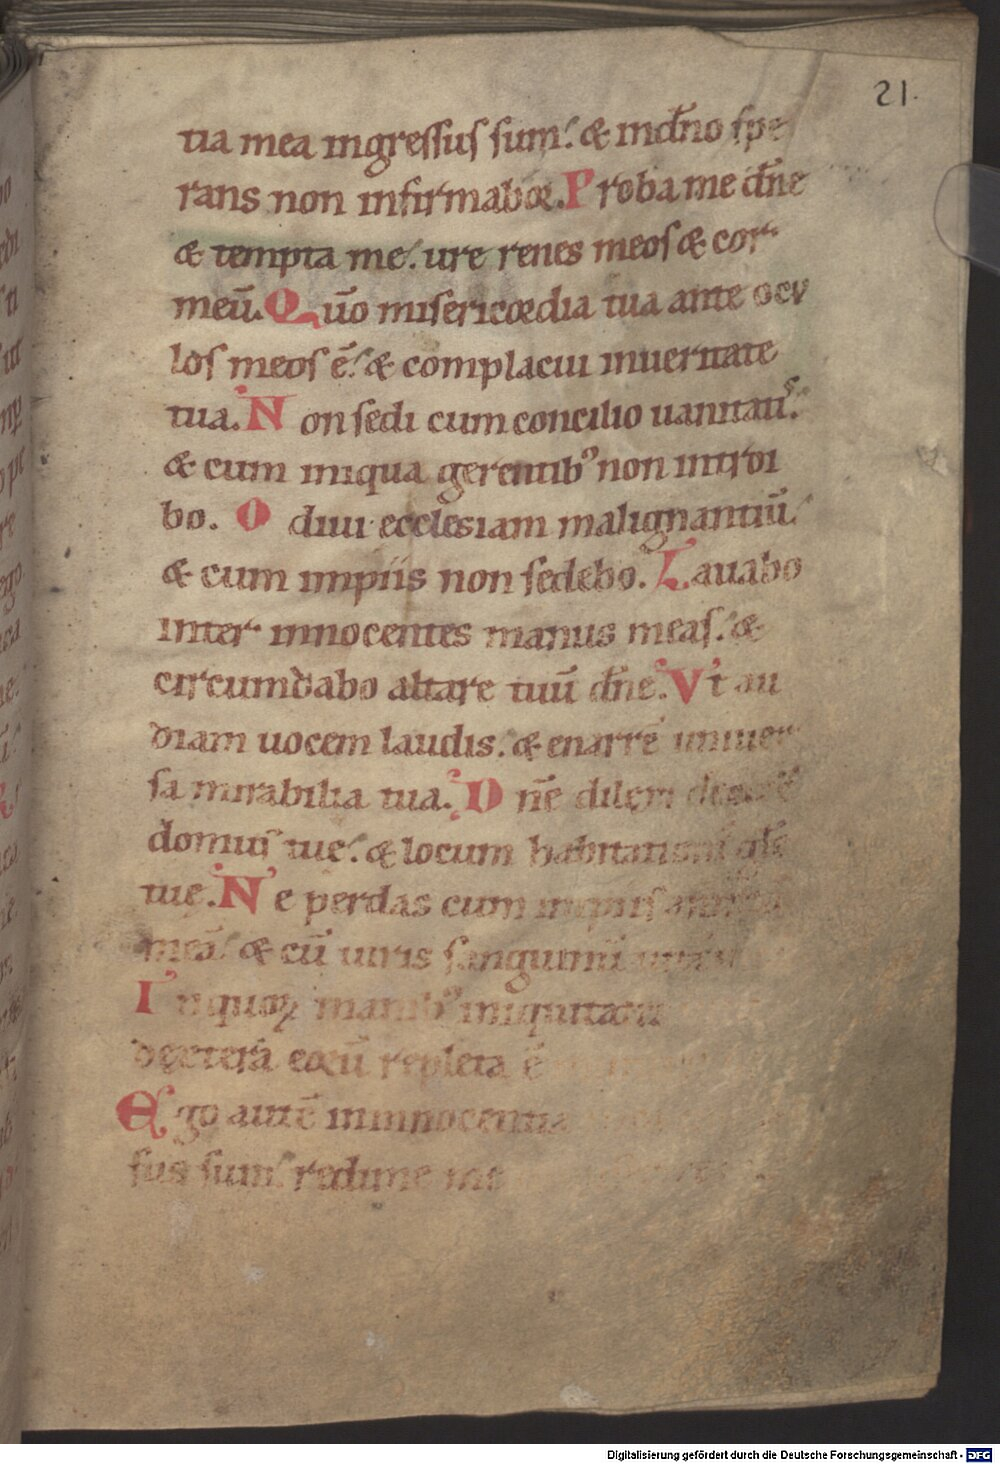 21.
tia mea ingressus sum. & indn̄o spe
rans non infirmabor. Proba me dn̄e
& tempta me. ure renes meos & cor
meū. Qūo misericordia tua ante ocu
los meos ē. & complacui inueritate
tua. Non sedi cum concilio uanitatis.
& cum iniqua gerentib; non introi
bo. Odiui ecclesiam malignantiū.
& cum impiis non sedebo. Lauabo
inter innocentes manus meas. &
circumdabo altare tuū dn̄e. Vt au
diam uocem laudis. & enarrē uniuer
sa mirabilia tua. Dn̄e dilexi decorē
domus tue. & locum habitationis glē
tue. Ne perdas cum impiis
meā. & cū uiris sanguinū
Inquoꝝ manib; iniquitates
dextera eorū repleta ē
Ego autē ininnocentia
sus sum. redime me
Digitalisierung gefördert durch die Deutsche Forschungsgemeinschaft - DFG